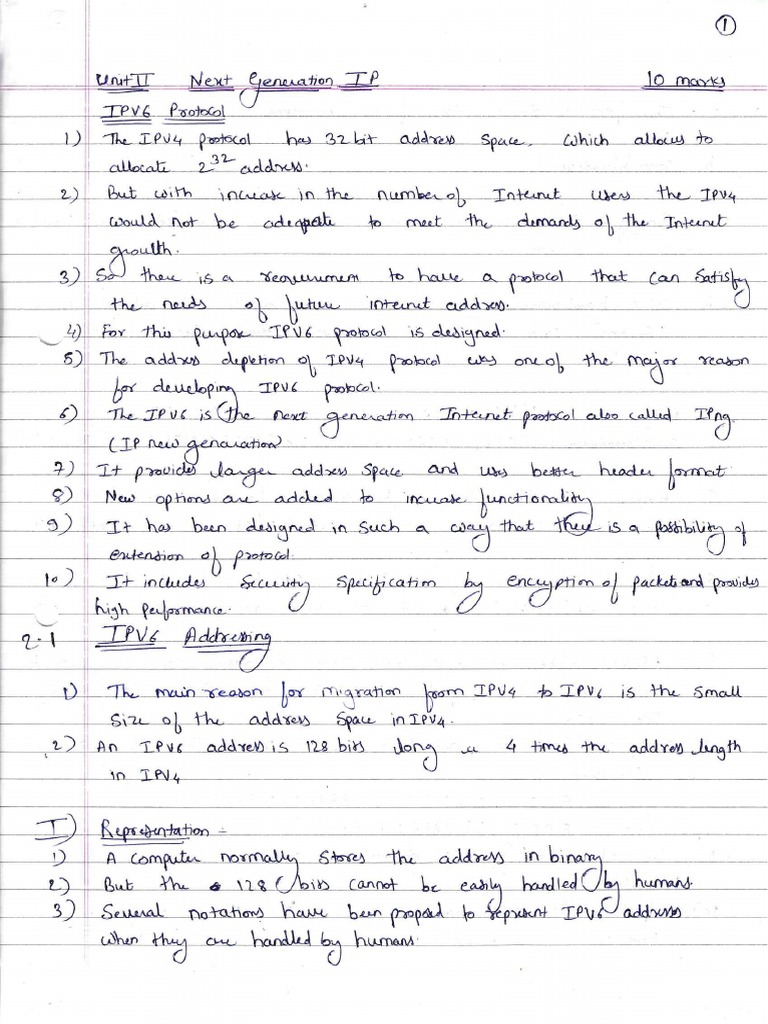 1
Unit II Next Generation IP 10 marks
IPV6 Protocol
1) The IPV4 protocol has 32 bit address space. Which allows to
allocate 2^32 address.
2) But with increase in the number of Internet users the IPV4
would not be adequate to meet the demands of the Internet
growth.
3) So there is a requirement to have a protocol that can satisfy
the needs of future internet address.
4) For this purpose IPV6 protocol is designed.
5) The address depletion of IPV4 protocol was one of the major reason
for developing IPV6 protocol.
6) The IPV6 is the next generation Internet protocol also called IPng.
(IP new genaration)
7) It provides larger address space and uses better header format
8) New options are added to increase functionality
9) It has been designed in such a way that there is a possibility of
extension of protocol.
10) It includes security specification by encryption of packets and provides
high performance.
2.1 IPV6 Addressing
1) The main reason for migration from IPV4 to IPV6 is the small
size of the address space in IPV4.
2) An IPV6 address is 128 bits long 4 times the address length
in IPV4
I) Representation :-
1) A computer normally stores the address in binary
2) But the 128 bits cannot be easily handled by humans.
3) Several notations have been proposed to represent IPV6 addresses
when they are handled by humans.